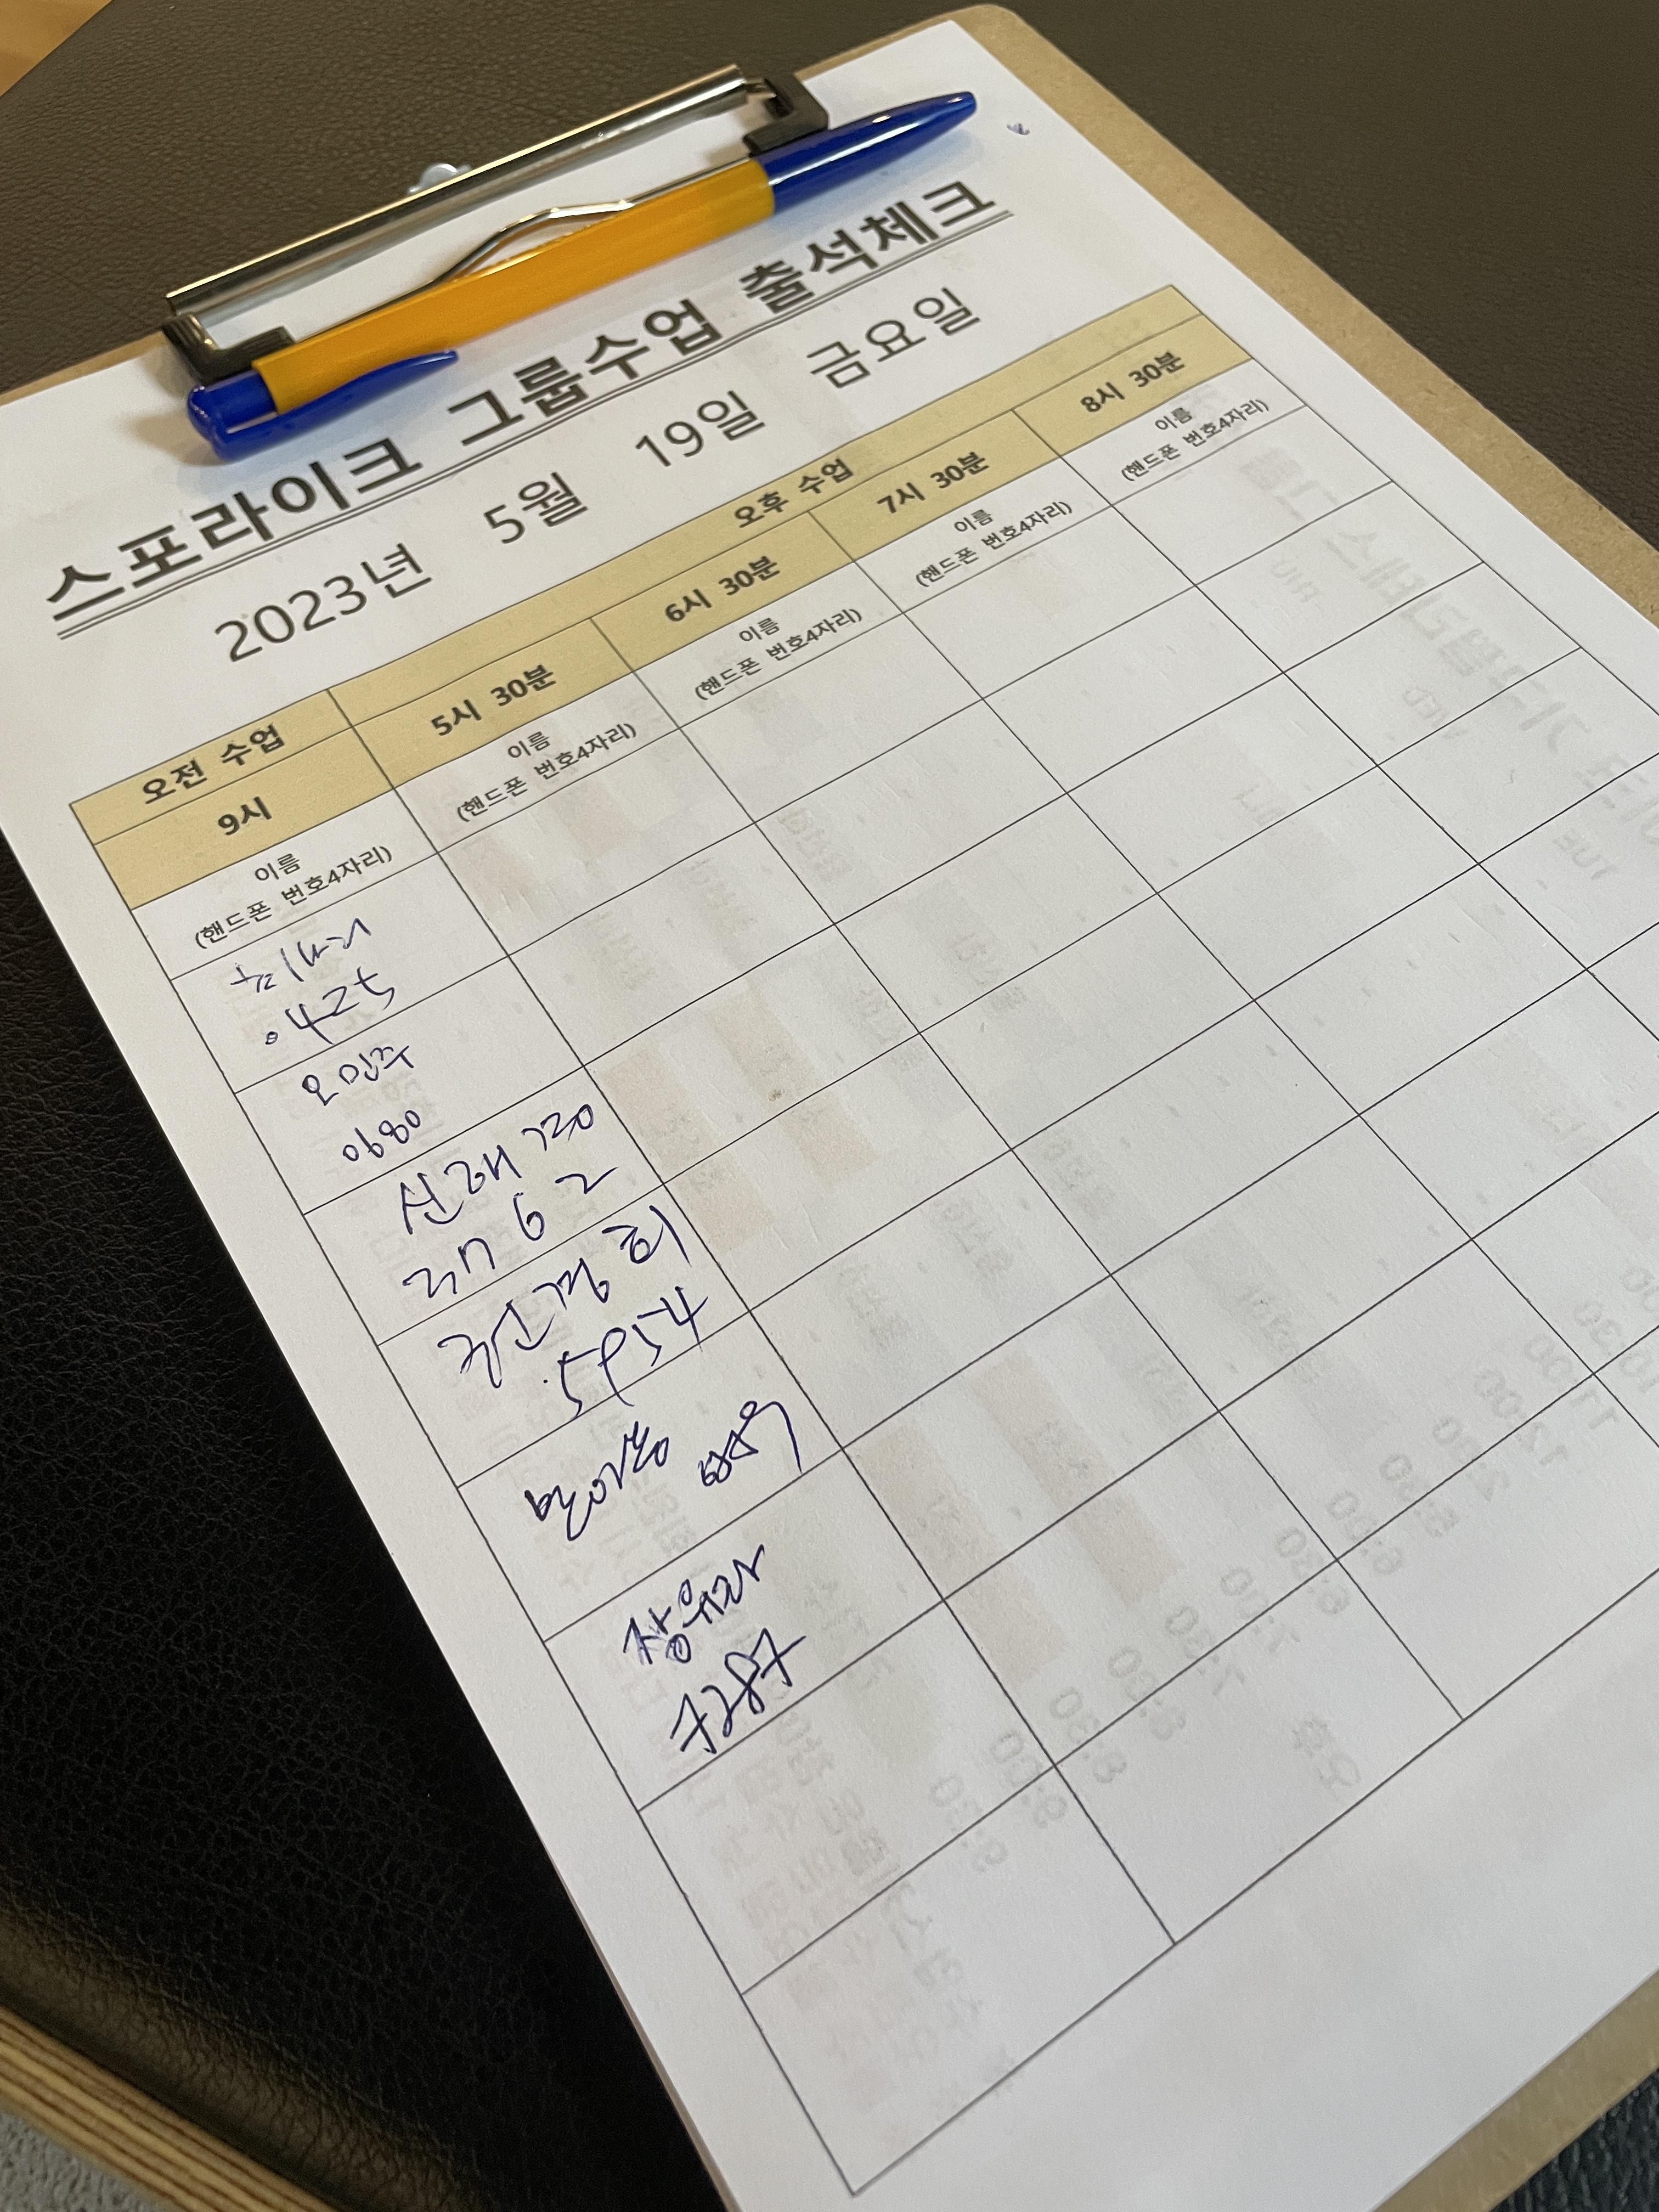 스포라이크 그룹수업 출석체크
2023년 5월 19일 금요일
오전 수업 오후 수업
9시 5시 30분 6시 30분 7시 30분 8시 30분
이름 이름 이름 이름 이름
(핸드폰 번호4자리) (핸드폰 번호4자리) (핸드폰 번호4자리) (핸드폰 번호4자리) (핸드폰 번호4자리)
0425
오민주
0680
신래경
2762
권경희
5954
장유라
7287